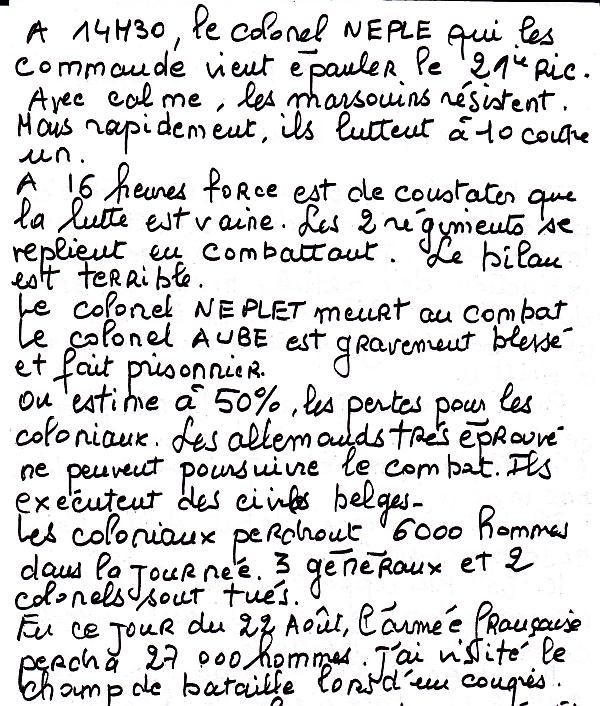 A 14H30, le colonel NEPLE qui les
commande vient épauler le 21e RIC.
Avec calme, les marsouins résistent.
Mais rapidement, ils luttent à 10 contre
un.
A 16 heures force est de constater que
la lutte est vaine. Les 2 régiments se
replient en combattant. Le bilan
est terrible.
Le colonel NEPLET meurt au combat
Le colonel AUBE est gravement blessé
et fait prisonnier.
On estime à 50%, les pertes pour les
coloniaux. Les allemands très éprouvé
ne peuvent poursuivre le combat. Ils
exécutent des civils belges-
Les coloniaux perdront 6000 hommes
dans la journée. 3 généraux et 2
colonels sont tués.
En ce jour du 22 Août, l'armée française
perdra 27 000 hommes. J'ai visité le
champ de bataille lors d'un congrés.